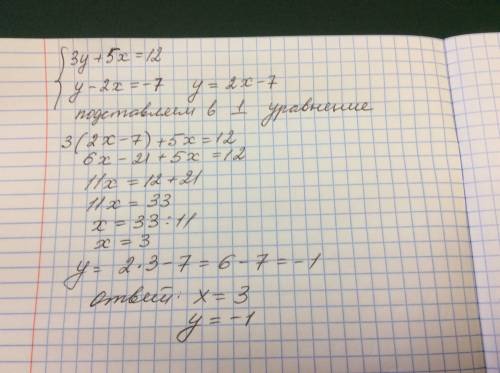 {3y+5x=12
y-2x=-7 y=2x-7
подставляем в 1 уравнение
3(2x-7)+5x=12
6x-21+5x=12
11x=12+21
11x=33
x=33:11
x=3
y= 2·3-7=6-7=-1
ответ: x=3
y=-1